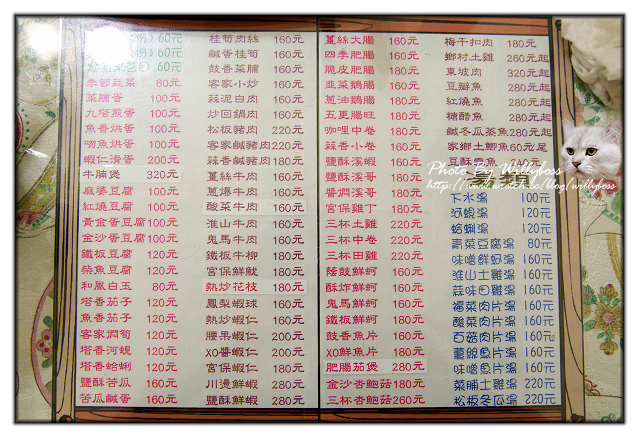 60元
(份) 60元
60元
季節蔬菜 60元
菜脯蛋 100元
九塔煎蛋 100元
魚香烘蛋 100元
吻魚烘蛋 100元
蝦仁滑蛋 200元
牛腩煲 320元
麻婆豆腐 100元
紅燒豆腐 100元
黃金蛋豆腐 100元
金沙蛋豆腐 100元
鐵板豆腐 120元
柴魚豆腐 120元
和風白玉 80元
塔香茄子 120元
魚香茄子 120元
客家燜筍 120元
塔香河蜆 120元
塔香蛤蜊 120元
鹽酥苦瓜 160元
苦瓜鹹蛋 160元
桂筍肉絲 160元
鹹蛋桂筍 160元
豉香菜脯 160元
客家小炒 160元
蒜泥白肉 160元
炒回鍋肉 160元
松板豬肉 220元
客家鹹豬肉 220元
蒜香鹹豬肉 180元
薑絲牛肉 160元
蔥爆牛肉 160元
酸菜牛肉 160元
淮山牛肉 160元
鬼馬牛肉 160元
鐵板牛柳 180元
宮保鮮魷 180元
熱炒花枝 180元
鳳梨蝦球 160元
熱炒蝦仁 160元
腰果蝦仁 200元
XO醬蝦仁 200元
宮保蝦仁 180元
川燙鮮蝦 280元
鹽酥鮮蝦 280元
薑絲大腸 160元
四季肥腸 160元
脆皮肥腸 180元
韭菜鵝腸 180元
蔥油鵝腸 180元
五更腸旺 180元
咖哩中卷 180元
蒜香小卷 160元
鹽酥溪蝦 160元
鹽酥溪哥 160元
醬燜溪哥 180元
宮保雞丁 160元
三杯土雞 220元
三杯中卷 220元
三杯田雞 220元
蔭鼓鮮蚵 160元
酥炸鮮蚵 160元
鬼馬鮮蚵 160元
鐵板鮮蚵 180元
豉香魚片 160元
XO鮮魚片 180元
肥腸茄煲 280元
金沙杏鮑菇 180元
三杯杏鮑菇 260元
梅干扣肉 180元
鄉村土雞 260元起
東坡肉 320元起
豆瓣魚 260元起
紅燒魚 260元起
糖醋魚 260元起
鹹冬瓜蒸魚 280元起
家鄉土鯽魚 60元尾
豆酥
Photo By Willyboss
http://www.wretch.cc/blog/willyboss
下水湯 100元
河蜆湯 120元
蛤蜊湯 120元
青菜豆腐湯 80元
味噌鮮蚵湯 160元
淮山土雞湯 160元
蒜味田雞湯 160元
福菜肉片湯 160元
酸菜肉片湯 160元
百菇肉片湯 160元
薑絲魚片湯 160元
味噌魚片湯 160元
菜脯土雞湯 220元
松板冬瓜湯 220元